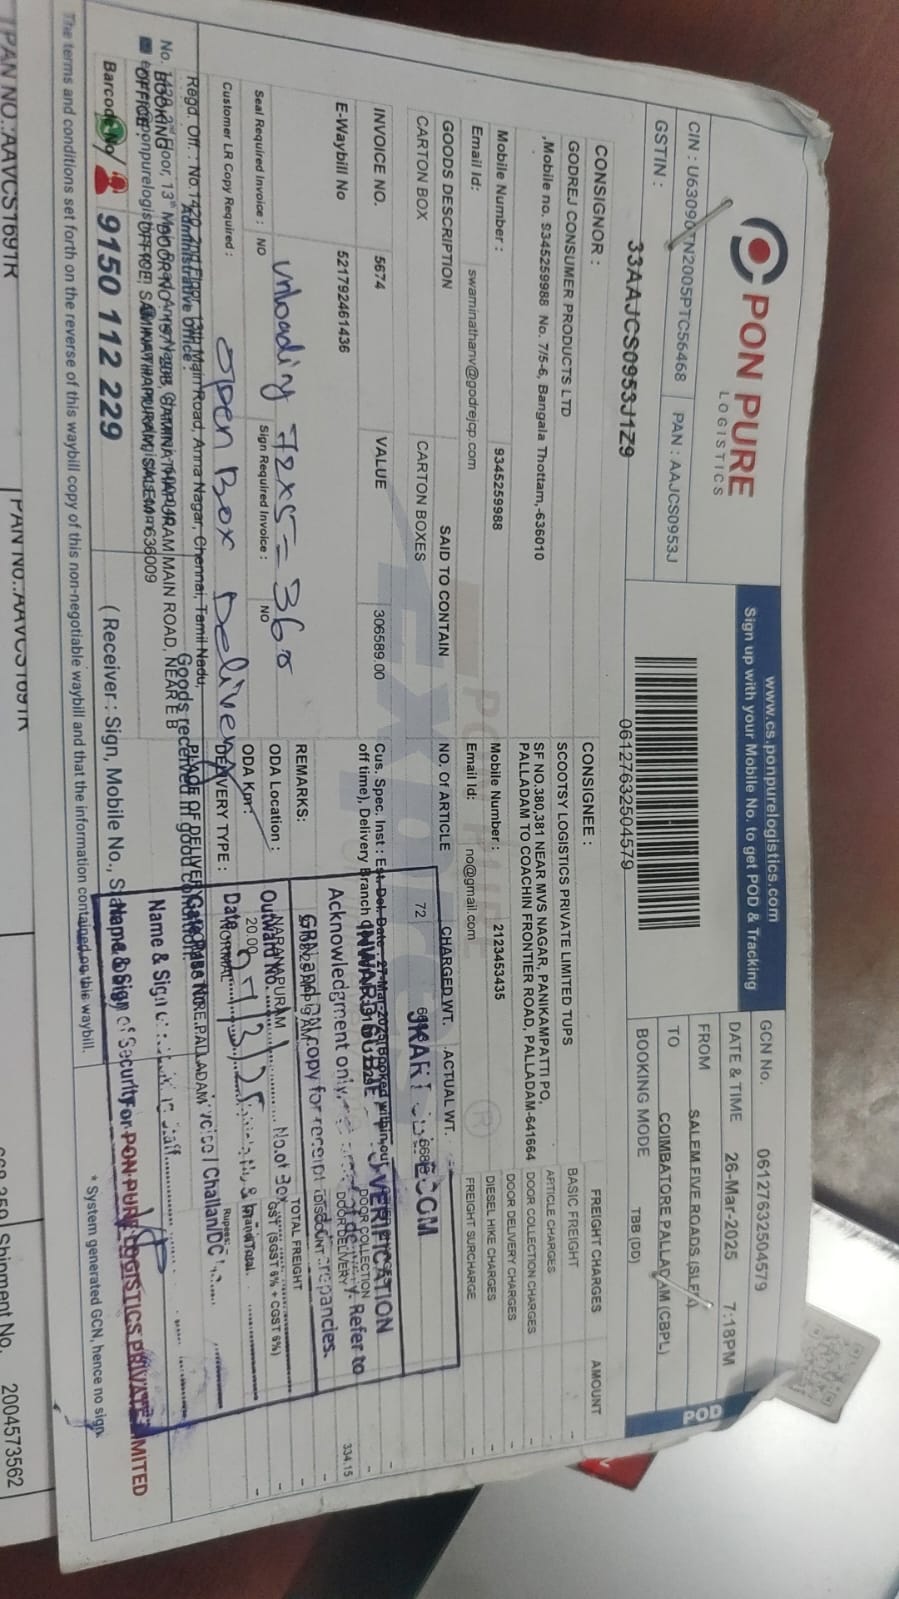 PON PURE
LOGISTICS
www.cs.ponpurelogistics.com
Sign up with your Mobile No. to get POD & Tracking
CIN : U63090TN2005PTC56468
PAN : AAJCS0953J
GSTIN :
33AAJCS0953J1Z9
06127632504579
GCN No. 06127632504579
DATE & TIME 26-Mar-2025 7:18PM
FROM SALEM FIVE ROADS (SLFA)
TO COIMBATORE PALLADAM (CBPL)
BOOKING MODE TBB (DD)
POD
CONSIGNOR :
GODREJ CONSUMER PRODUCTS LTD
,Mobile no. 9345259988 No. 7/5-6, Bangala Thottam,-636010
Mobile Number : 9345259988
Email Id: swaminathanv@godrejcp.com
CONSIGNEE :
SCOOTSY LOGISTICS PRIVATE LIMITED TUPS
SF NO.380,381 NEAR MVS NAGAR, PANIKAMPATTI PO,
PALLADAM TO COACHIN FRONTIER ROAD, PALLADAM-641664
Mobile Number : 2123453435
Email Id: no@gmail.com
FREIGHT CHARGES AMOUNT
BASIC FREIGHT -
ARTICLE CHARGES -
DOOR COLLECTION CHARGES -
DOOR DELIVERY CHARGES -
DIESEL HIKE CHARGES -
FREIGHT SURCHARGE -
GOODS DESCRIPTION SAID TO CONTAIN NO. Of ARTICLE CHARGED WT. ACTUAL WT.
CARTON BOX CARTON BOXES 72
INVOICE NO. 5674 VALUE 306589.00
E-Waybill No 521792461436
Cus. Spec. Inst :
off time), Delivery Branch
INWARD SUBJE VERIFICATION
DOOR COLLECTION -
DOOR DELIVERY 334.15
Acknowledgment only, Refer to
REMARKS: GRN and copy for receipt discrepancies.
TOTAL FREIGHT -
Unloading 72x5=360
Seal Required Invoice : NO
Sign Required Invoice : NO
ODA Location : NARANAPURAM
Outward No. No.of Box
GST (SGST 6% + CGST 6%) -
Customer LR Copy Required :
Open Box Delivery
ODA Kpr: 20.00
DELIVERY TYPE : NORMAL
Date
Grand Total. -
Rupees:
Regd. Off. : No.1420, 2nd Floor, 13th Main Road, Anna Nagar, Chennai, Tamil Nadu,
Administrative Office :
Goods received in good condition.
PLACE OF DELIVERY PALLADAM
Challan/DC
BOOKING
OFFICE:
Name & Sign
Staff
Barcode No/ 9150 112 229
( Receiver : Sign, Mobile No., S
Name & Sign of Security
For PON PURE LOGISTICS PRIVATE LIMITED
The terms and conditions set forth on the reverse of this waybill copy of this non-negotiable waybill and that the information contained on this waybill.
* System generated GCN, hence no sign.
PAN NO.:AAVCS1691R
PAN NO.:AAVCS1691R
Shipment No. 2004573562